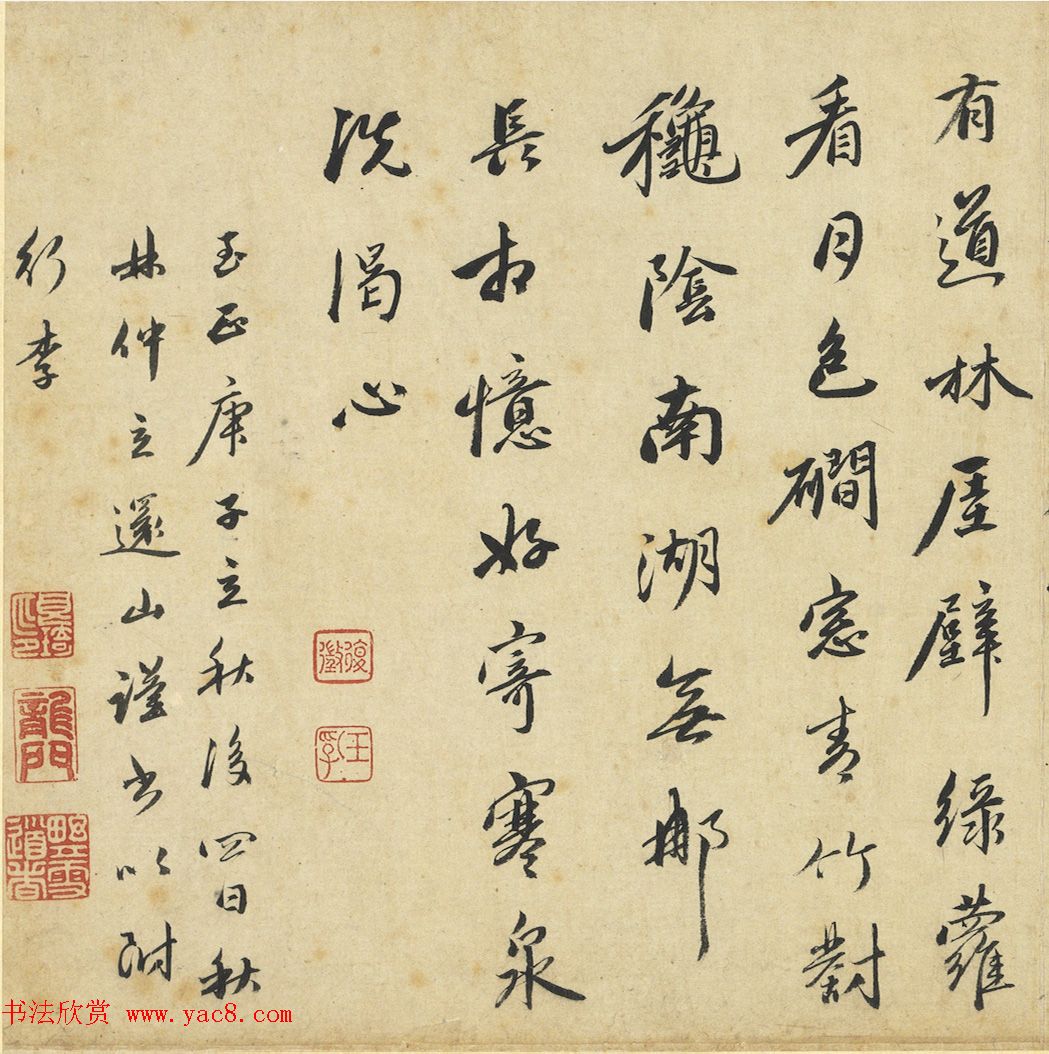 有道林厓壁綠蘿
看月色磵窓青竹對
龝陰南湖無那
長相憶好寄寒泉
洗渴心
至正庚子立秋後四日秋
林仲立還山謹書以附
行李
龍門
书法欣赏 www.yac8.com